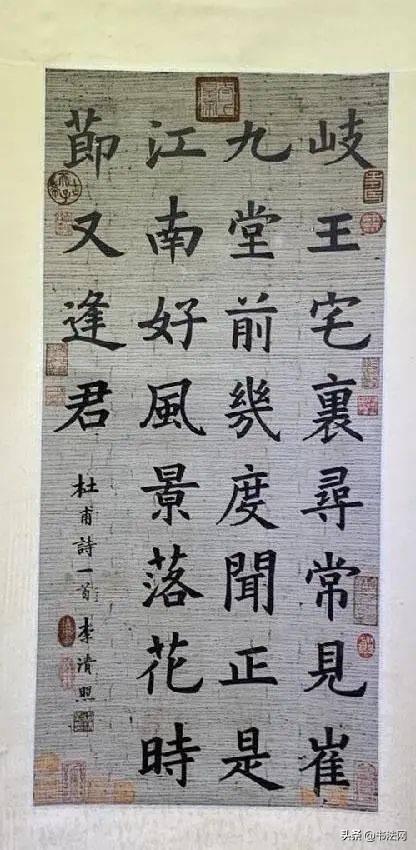 岐王宅裏尋常見崔
九堂前幾度聞正是
江南好風景落花時
節又逢君
杜甫詩一首 李清照
头条 @书法网